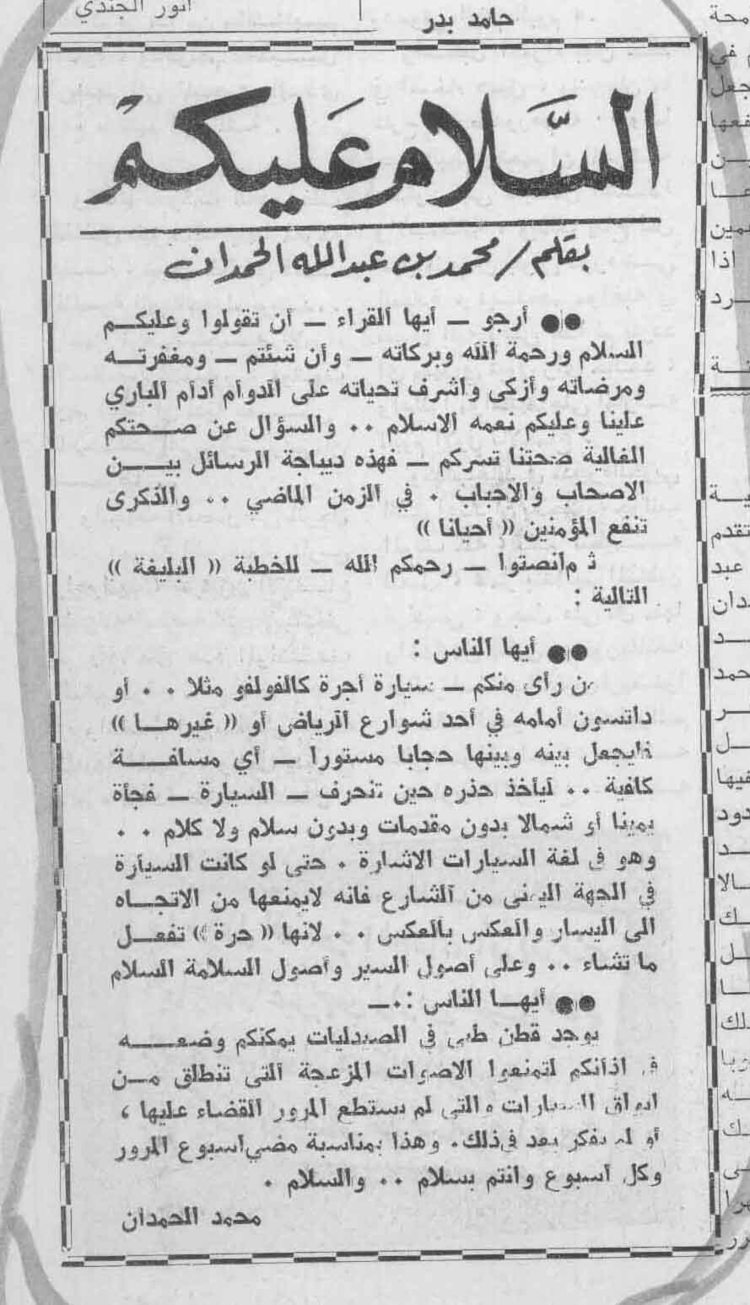 أنور الجندي
حامد بدر
السَّلام عَليكم
بقلم / محمد بن عبدالله الحمدان
●● أرجو ــ أيها القراء ــ أن تقولوا وعليكم
السلام ورحمة الله وبركاته ــ وأن شئتم ــ ومغفرته
ومرضاته وأزكى واشرف تحياته على الدوام أدام الباري
علينا وعليكم نعمه الاسلام .. والسؤال عن صحتكم
الغالية صحتنا تسركم ــ فهذه ديباجة الرسائل بين
الاصحاب والاحباب . في الزمن الماضي .. والذكرى
تنفع المؤمنين « أحيانا »
ثم انصتوا ــ رحمكم الله ــ للخطبة « البليغة »
التالية :
●● أيها الناس :
من رأى منكم ــ سيارة أجرة كالفولفو مثلا .. أو
داتسون أمامه في أحد شوارع الرياض أو « غيرها »
فليجعل بينه وبينها حجابا مستورا ــ أي مسافة
كافية .. ليأخذ حذره حين تنحرف ــ السيارة ــ فجأة
يمينا أو شمالا بدون مقدمات وبدون سلام ولا كلام ..
وهو في لغة السيارات الاشارة . حتى لو كانت السيارة
في الجهة اليمنى من الشارع فانه لايمنعها من الاتجاه
الى اليسار والعكس بالعكس .. لانها « حرة » تفعل
ما تشاء .. وعلى أصول السير وأصول السلامة السلام
●● أيها الناس :ــ
يوجد قطن طبي في الصيدليات يمكنكم وضعه
في اذانكم لتمنعوا الاصوات المزعجة التى تنطلق من
ابواق السيارات والتي لم يستطع المرور القضاء عليها ،
أو لم يفكر بعد في ذلك. وهذا بمناسبة مضي اسبوع المرور
وكل اسبوع وانتم بسلام .. والسلام .
محمد الحمدان